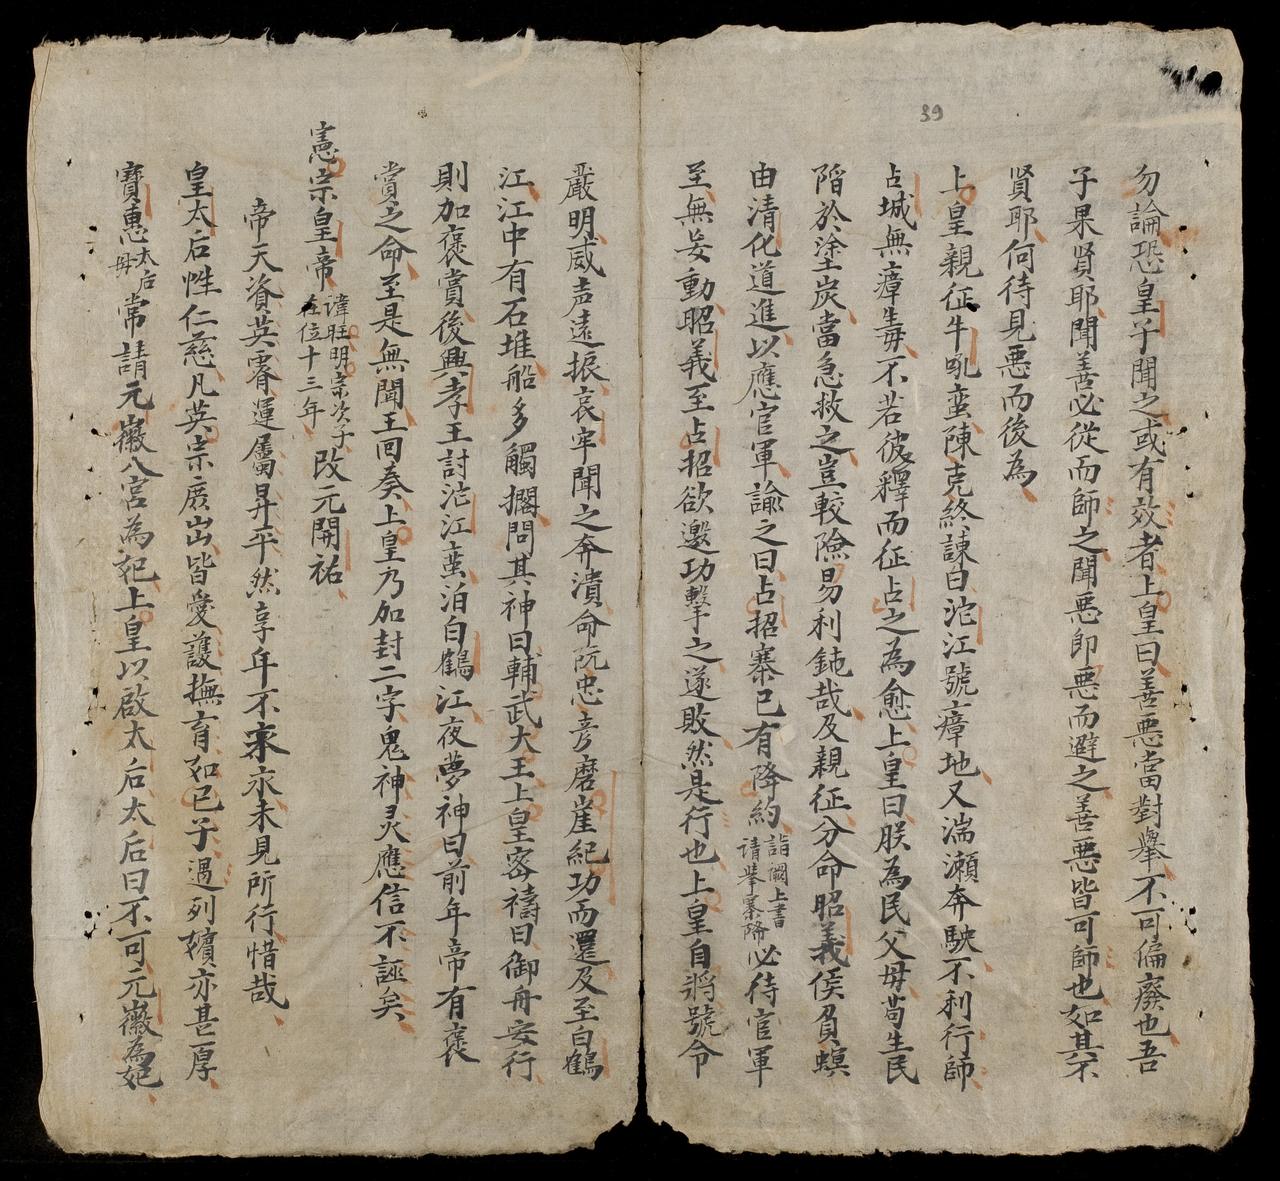 39
勿論恐皇子聞之或有效者上皇曰善惡當對舉不可偏廢也吾
子果賢耶聞善必從而師之聞惡即惡而避之善惡皆可師也如其不
賢耶何待見惡而後為
上皇親征牛吼蛮陳克終諫曰沱江號瘴地又湍瀬奔駛不利行師
占城無瘴毒不若彼釋而征占之為愈上皇曰朕為民父毋苟生民
陷於塗炭當急救之豈較險易利鈍哉及親征分命昭義侯負螟
由清化道進以應官軍諭之曰占招寨已有降約詣闕上書请举寨降必待官軍
至無妄動昭義至占招欲邀功擊之遂敗然是行也上皇自將號令
嚴明威声遠振哀牢聞之奔潰命阮忠彦磨崖紀功而還及至白鶴
江江中有石堆船多觸擱問其神曰輔武大王上皇密禱曰御舟安行
則加褒賞後興孝王討沱江蛮泊白鶴江夜夢神曰前年帝有褒
賞之命至是無聞王回奏上皇乃加封二字鬼神灵應信不誣矣
憲宗皇帝諱旺明宗次子在位十三年改元開祐
帝天資英睿運屬昇平然享年不永未見所行惜哉
皇太后性仁慈凡英宗庶出皆愛護撫育如己子遇列嬪亦甚厚
寶惠太后毋常請元徽八宮為妃上皇以啟太后太后曰不可元徽為妃